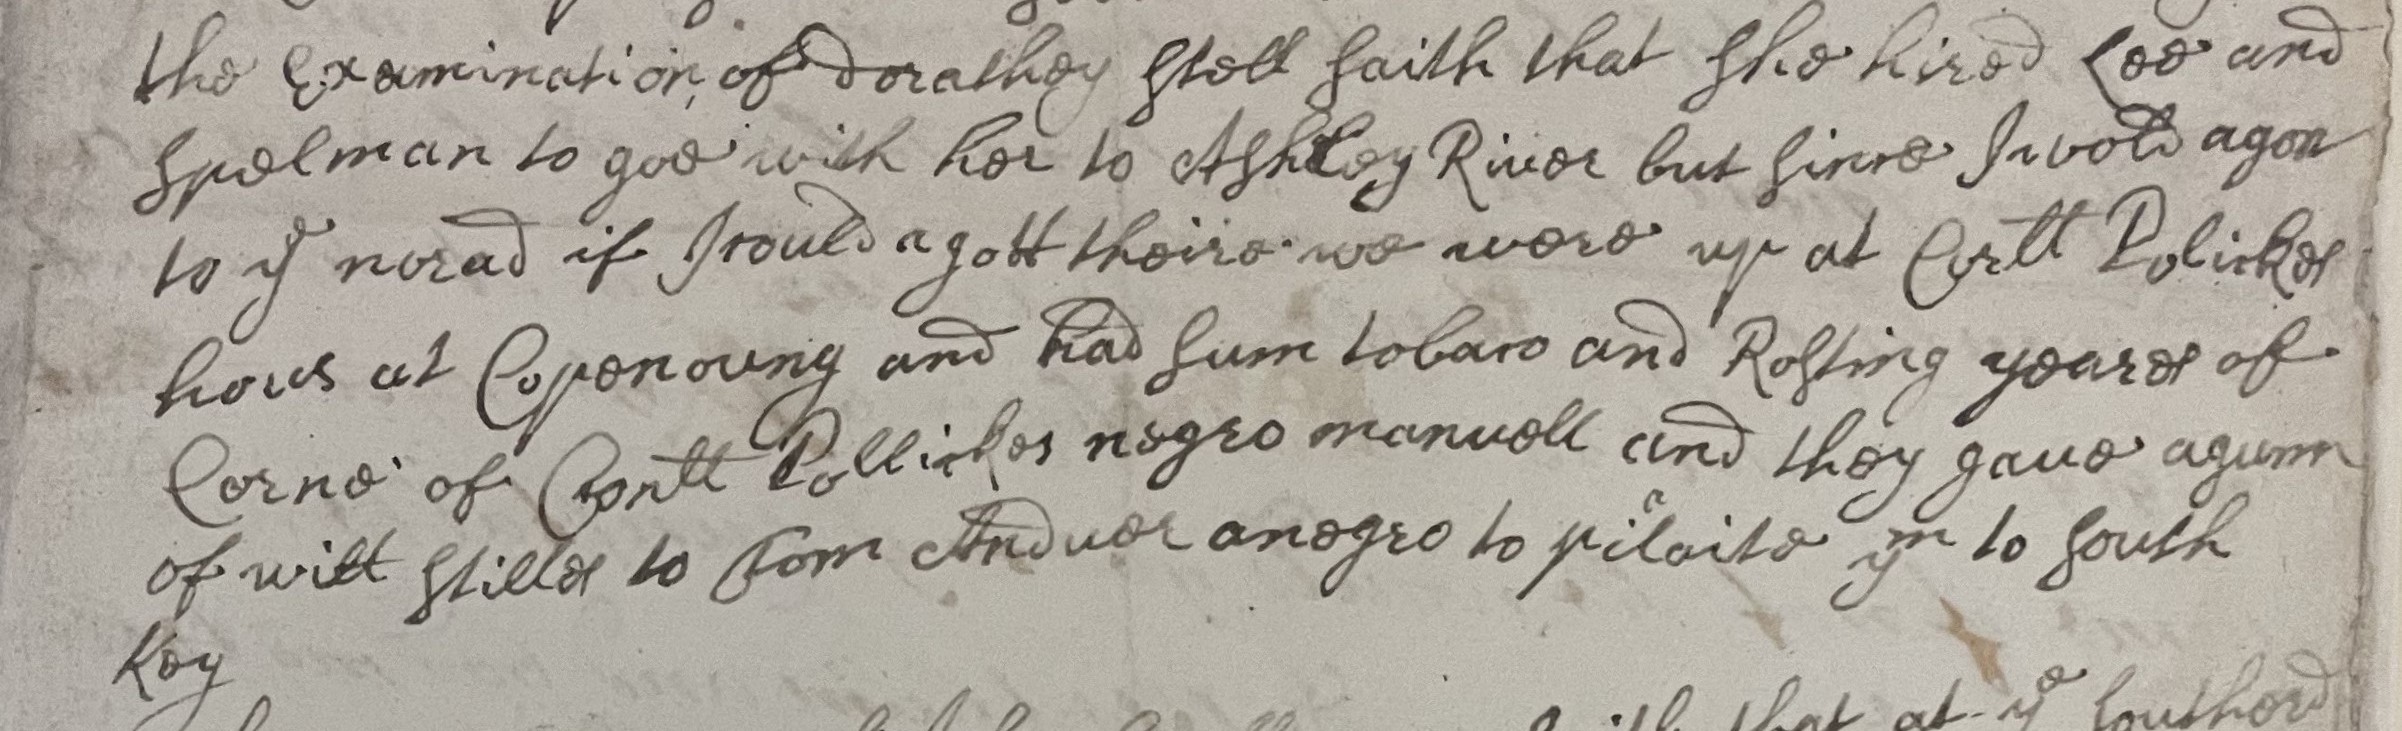 the Examination of dorathey Stell saith that she hired Lee and
spelman to goe with her to Ashley River but since I wold agon
to ye norad if I could a gott theire we were up at Corll Polickes
hous at Copenoung and had sum tobaco and Rosting yeares of
Corne of Coronll Pollickes negro manuell and they gaue agunn
of will stilles to Tom Anduer anegro to pilaite ym to south
Key
saith that at ye southord